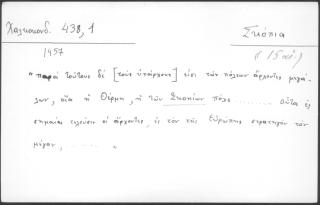 Χαλκοκονδ. 438,1
Σκόπια
1457
(15 αἰ.)
"παρὰ τούτους δὲ [τοὺς ὑπάρχους] εἰσὶ τῶν πόλεων ἄρχοντες μεγά-
λων, οἷα ἡ Θέρμη, ἡ τῶν Σκοπίων πόλις ........ οὗτοι ἐς
σημαίαν τελοῦσιν οἱ ἄρχοντες, ἐς τὸν τῆς Εὐρώπης στρατηγὸν τὸν
μέγαν, ........ "